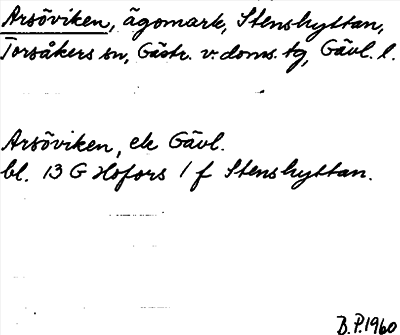 Arsöviken, ägomark, Stenshyttan,
Torsåkers sn, Gästr. v. doms. tg, Gävl. l.
Arsöviken, ek Gävl.
bl. 13 G Hofors 1 f Stenshyttan.
B.P. 1960